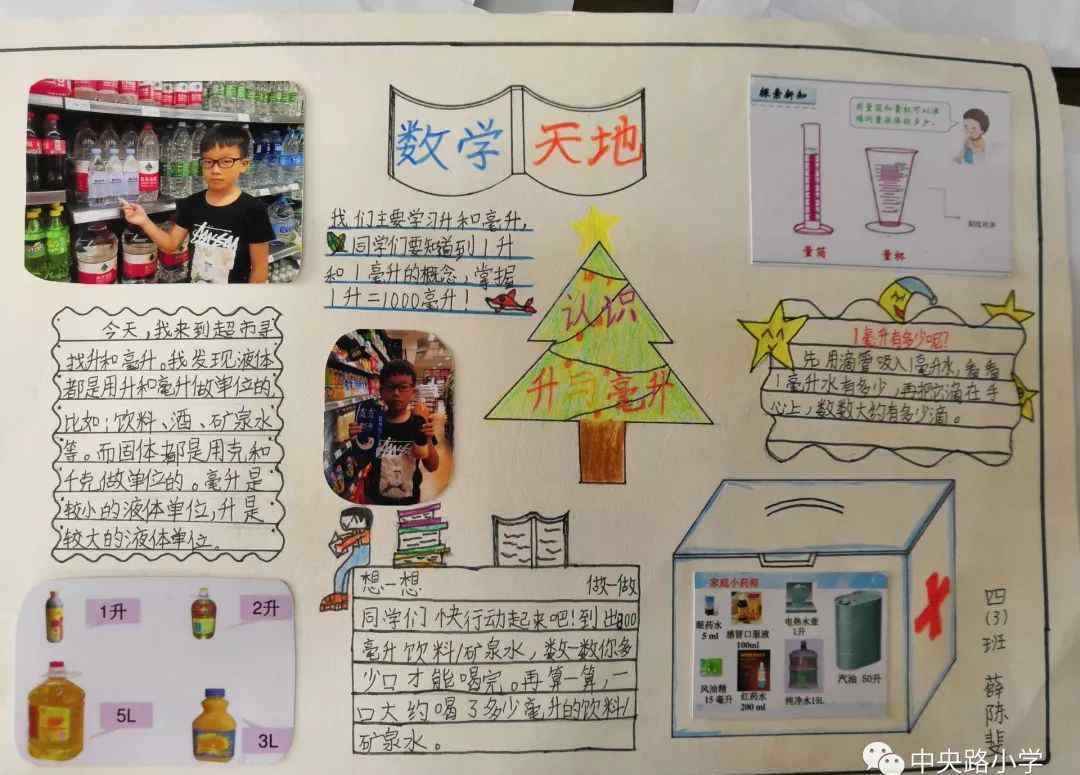 数学 天地
我们主要学习升和毫升,
同学们要知道到1升
和1毫升的概念,掌握
1升=1000毫升!
探索新知
用量筒和量杯可以准
确测量液体的多少。
量筒
量杯
今天,我来到超市寻
找升和毫升。我发现液体
都是用升和毫升做单位的,
比如:饮料、酒、矿泉水
等。而固体都是用克和
千克做单位的。毫升是
较小的液体单位,升是
较大的液体单位。
认识
升与毫升
1毫升有多少呢?
先用滴管吸入1毫升水,看看
1毫升水有多少,再把它滴在手
心上,数数大约有多少滴。
1升
2升
5L
3L
想一想 做一做
同学们快行动起来吧!到出800
毫升饮料/矿泉水,数一数你多
少口才能喝完。再算一算,一
口大约喝了多少毫升的饮料/
矿泉水。
家庭小药箱
眼药水
5 ml
感冒口服液
100ml
电热水壶
1升
汽油 50升
风油精
15 毫升
红药水
200 ml
纯净水19L
四(3)班 薛陈斐
中央路小学